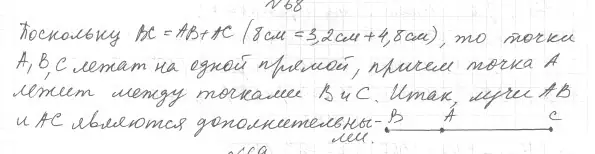 №68
Поскольку BC = AB + AC (8см = 3,2см + 4,8см), то точки
A, B, C лежат на одной прямой, причем точка A
лежит между точками B и C. Итак, лучи AB
и AC являются дополнительны-
ми.
B A C
№69